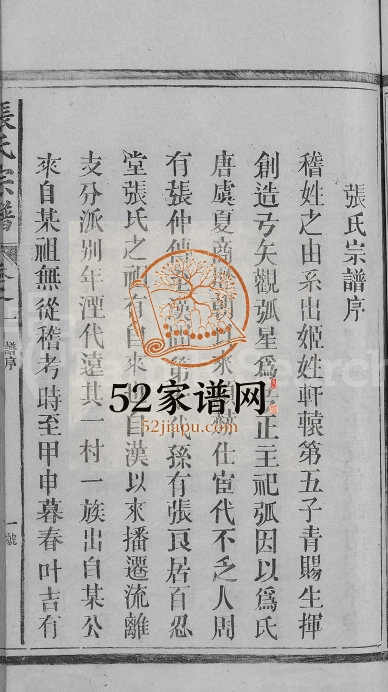 張氏宗譜序
稽姓之由系出姬姓軒轅第五子青賜生揮
創造弓矢觀弧星爲正王祀弧因以爲氏
唐虞夏商朝以來仕宦代不乏人周
有張仲傳至漢代孫有張良居百忍
堂張氏之祖有自來自漢以來播遷流離
支分派別年湮代遠其一村一族出自某公
來自某祖無從稽考時至甲申暮春叶吉有
張氏宗譜
譜序
一號
52家谱网
52jiapu.com